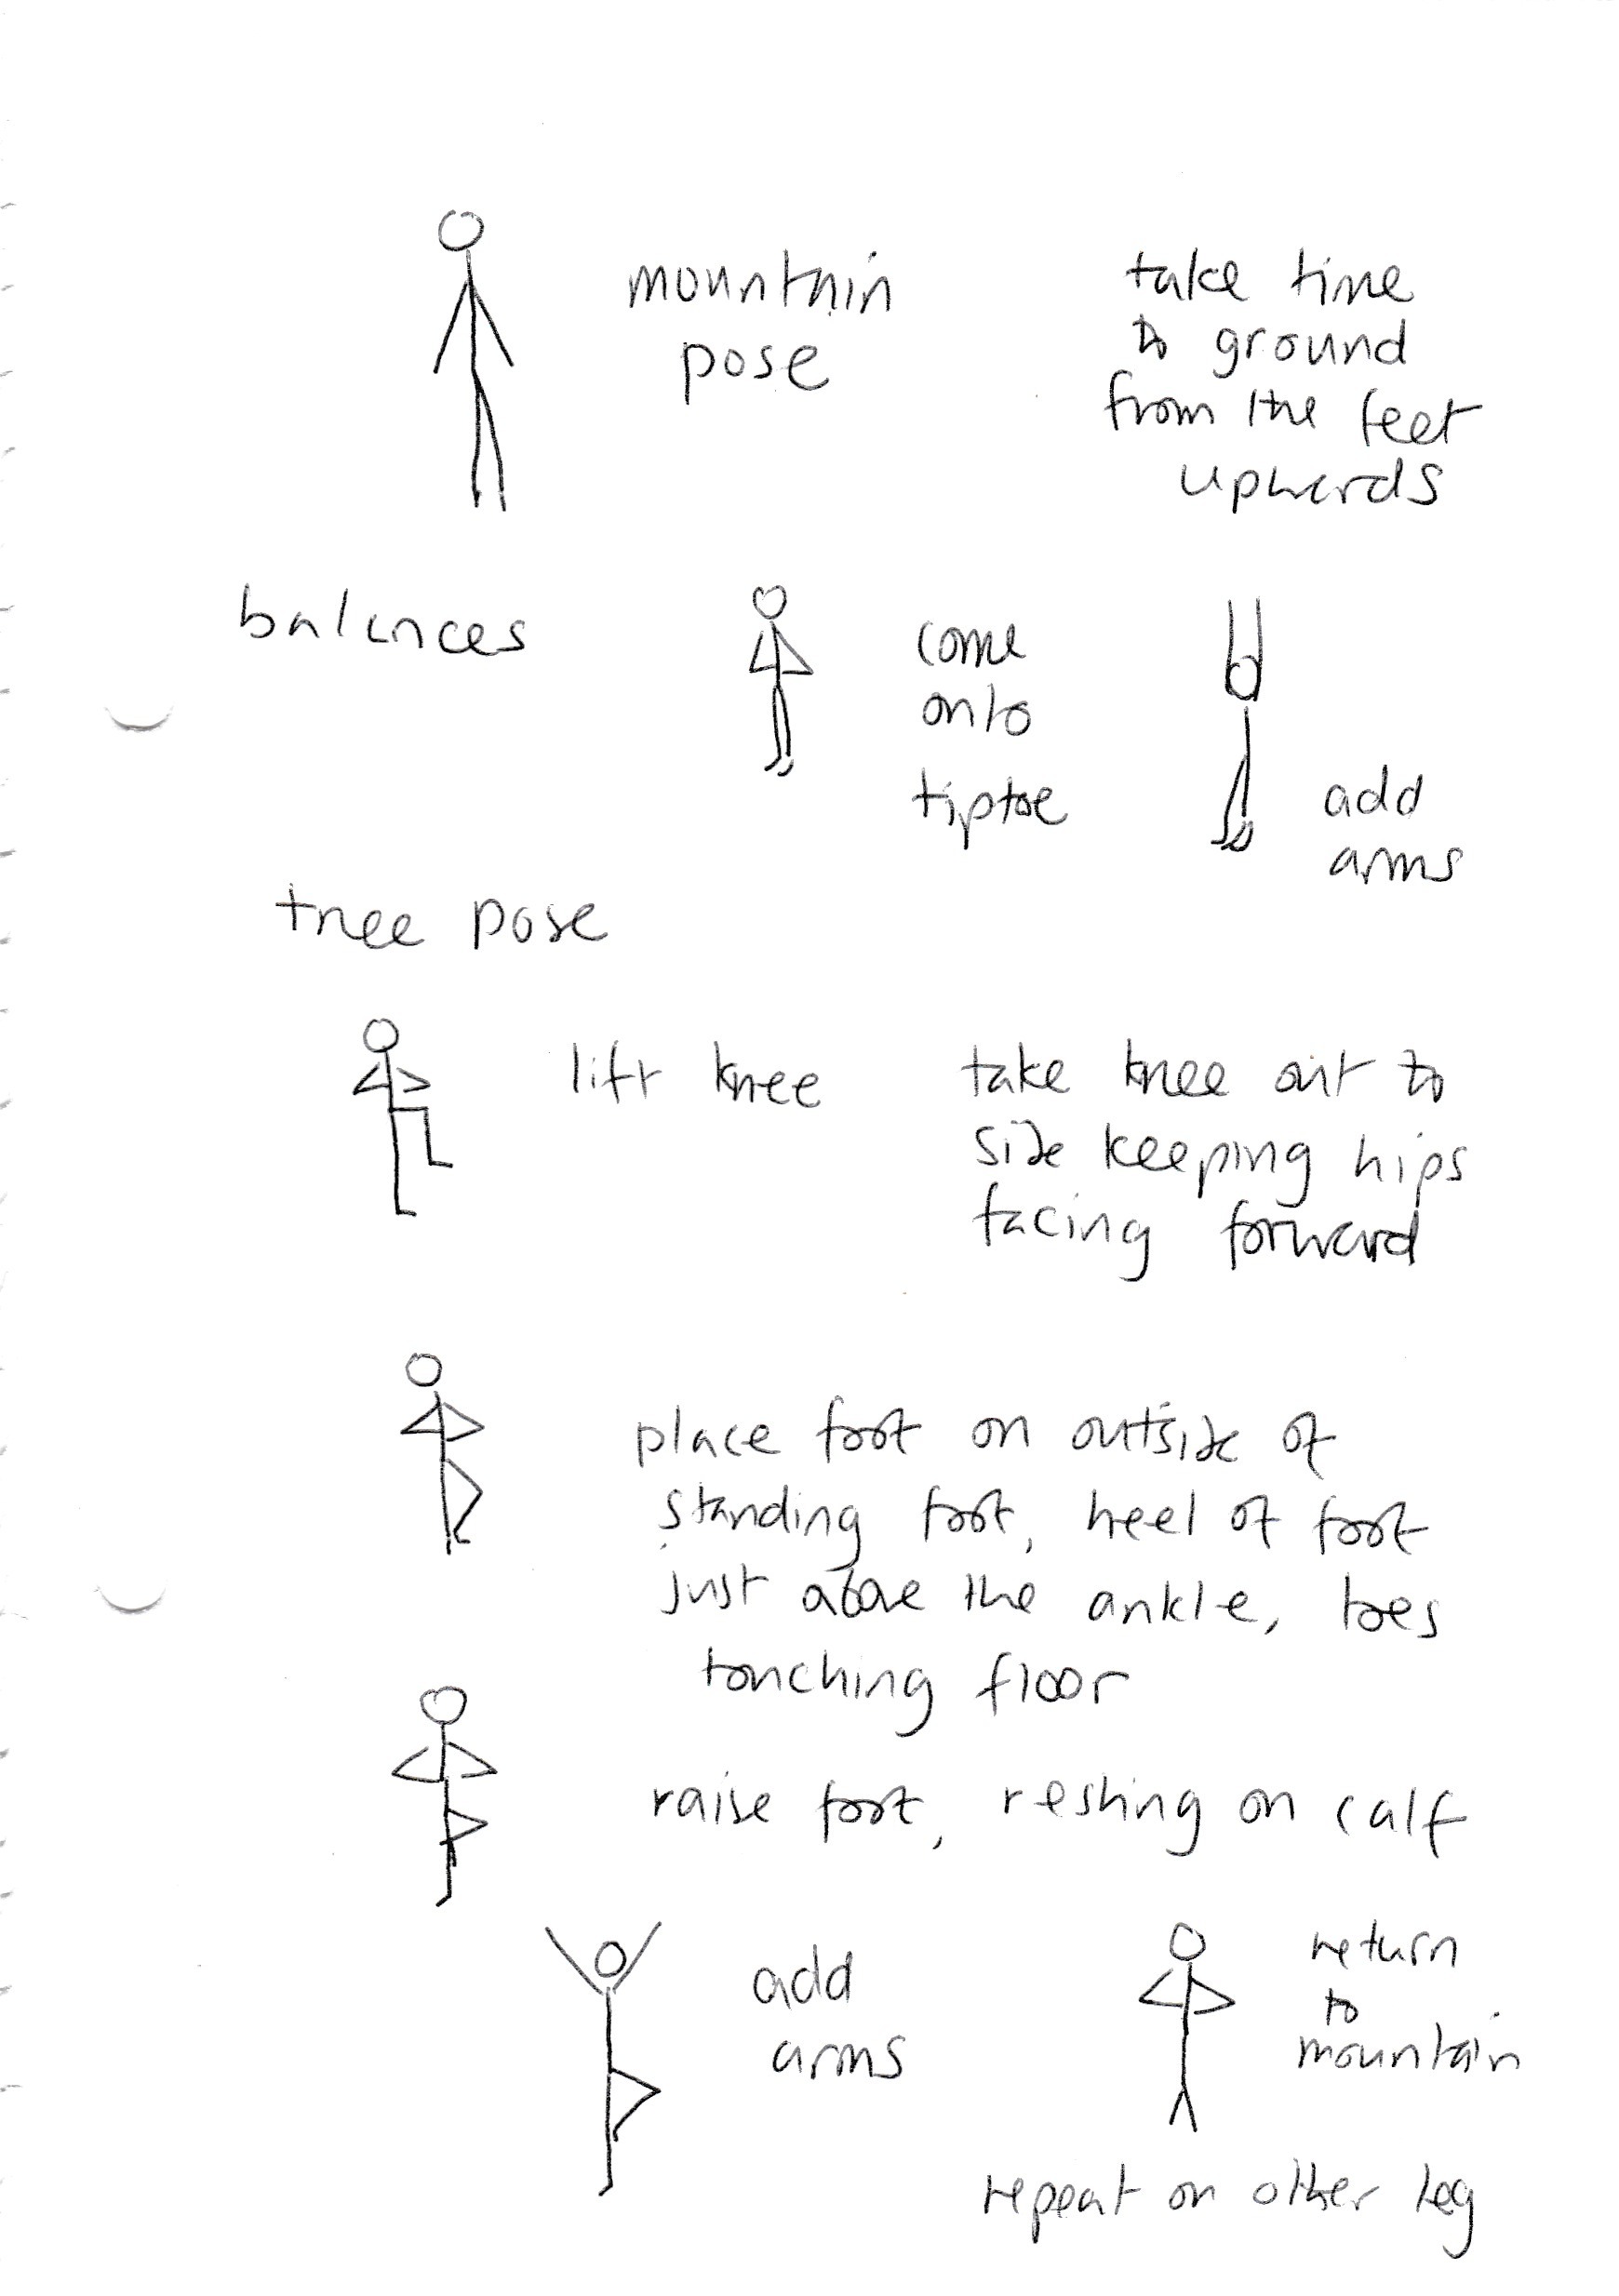 mountain
pose
take time
to ground
from the feet
upwards
balances
come
onto
tiptoe
add
arms
tree pose
lift knee
take knee out to
side keeping hips
facing forward
place foot on outside of
standing foot, heel of foot
just above the ankle, toes
touching floor
raise foot, resting on calf
add
arms
return
to
mountain
repeat on other leg